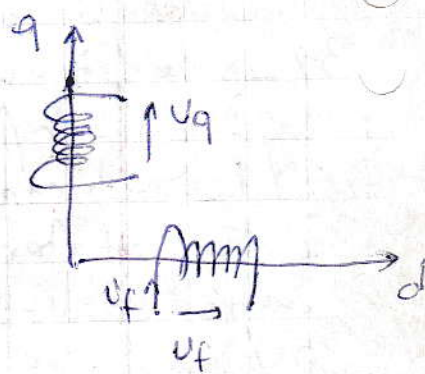 q
Uq
d
if
Uf